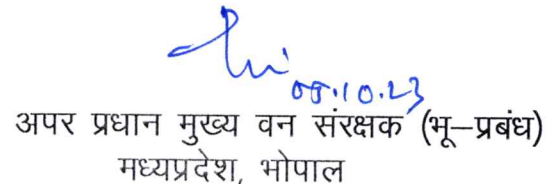 .10.23
अपर प्रधान मुख्य वन संरक्षक (भू–प्रबंध)
मध्यप्रदेश, भोपाल